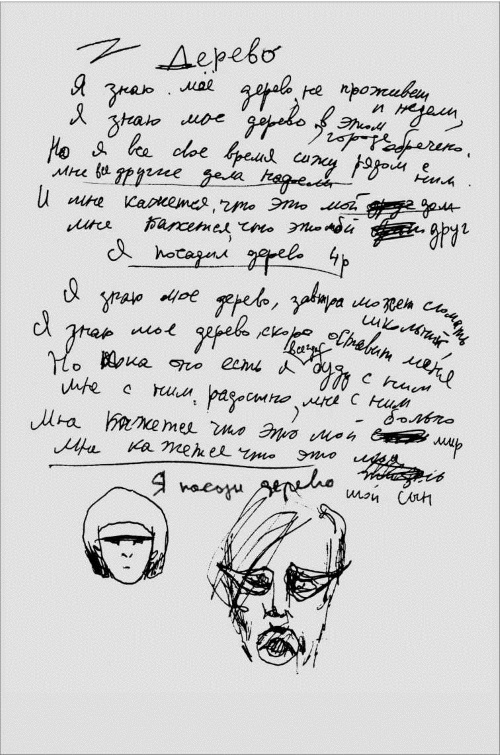 Дерево
Я знаю моё дерево, не проживет и недели,
Я знаю мое дерево в этом городе обречено.
Но я все свое время сижу рядом с ним.
мне все другие дела надоели
И мне кажется, что это мой дом
мне кажется, что это мой друг
Я посадил дерево 4р
Я знаю мое дерево, завтра может сломать школьник,
Я знаю мое дерево, скоро оставит меня
Но пока оно есть я всегда буду с ним
мне с ним радостно, мне с ним больно
Мне кажется что это мой мир
мне кажется что это мой сын
Я посади дерево